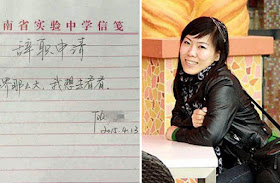 南省实验中学信笺
辞职申请
界那么大，我想去看看.
2015.4.13